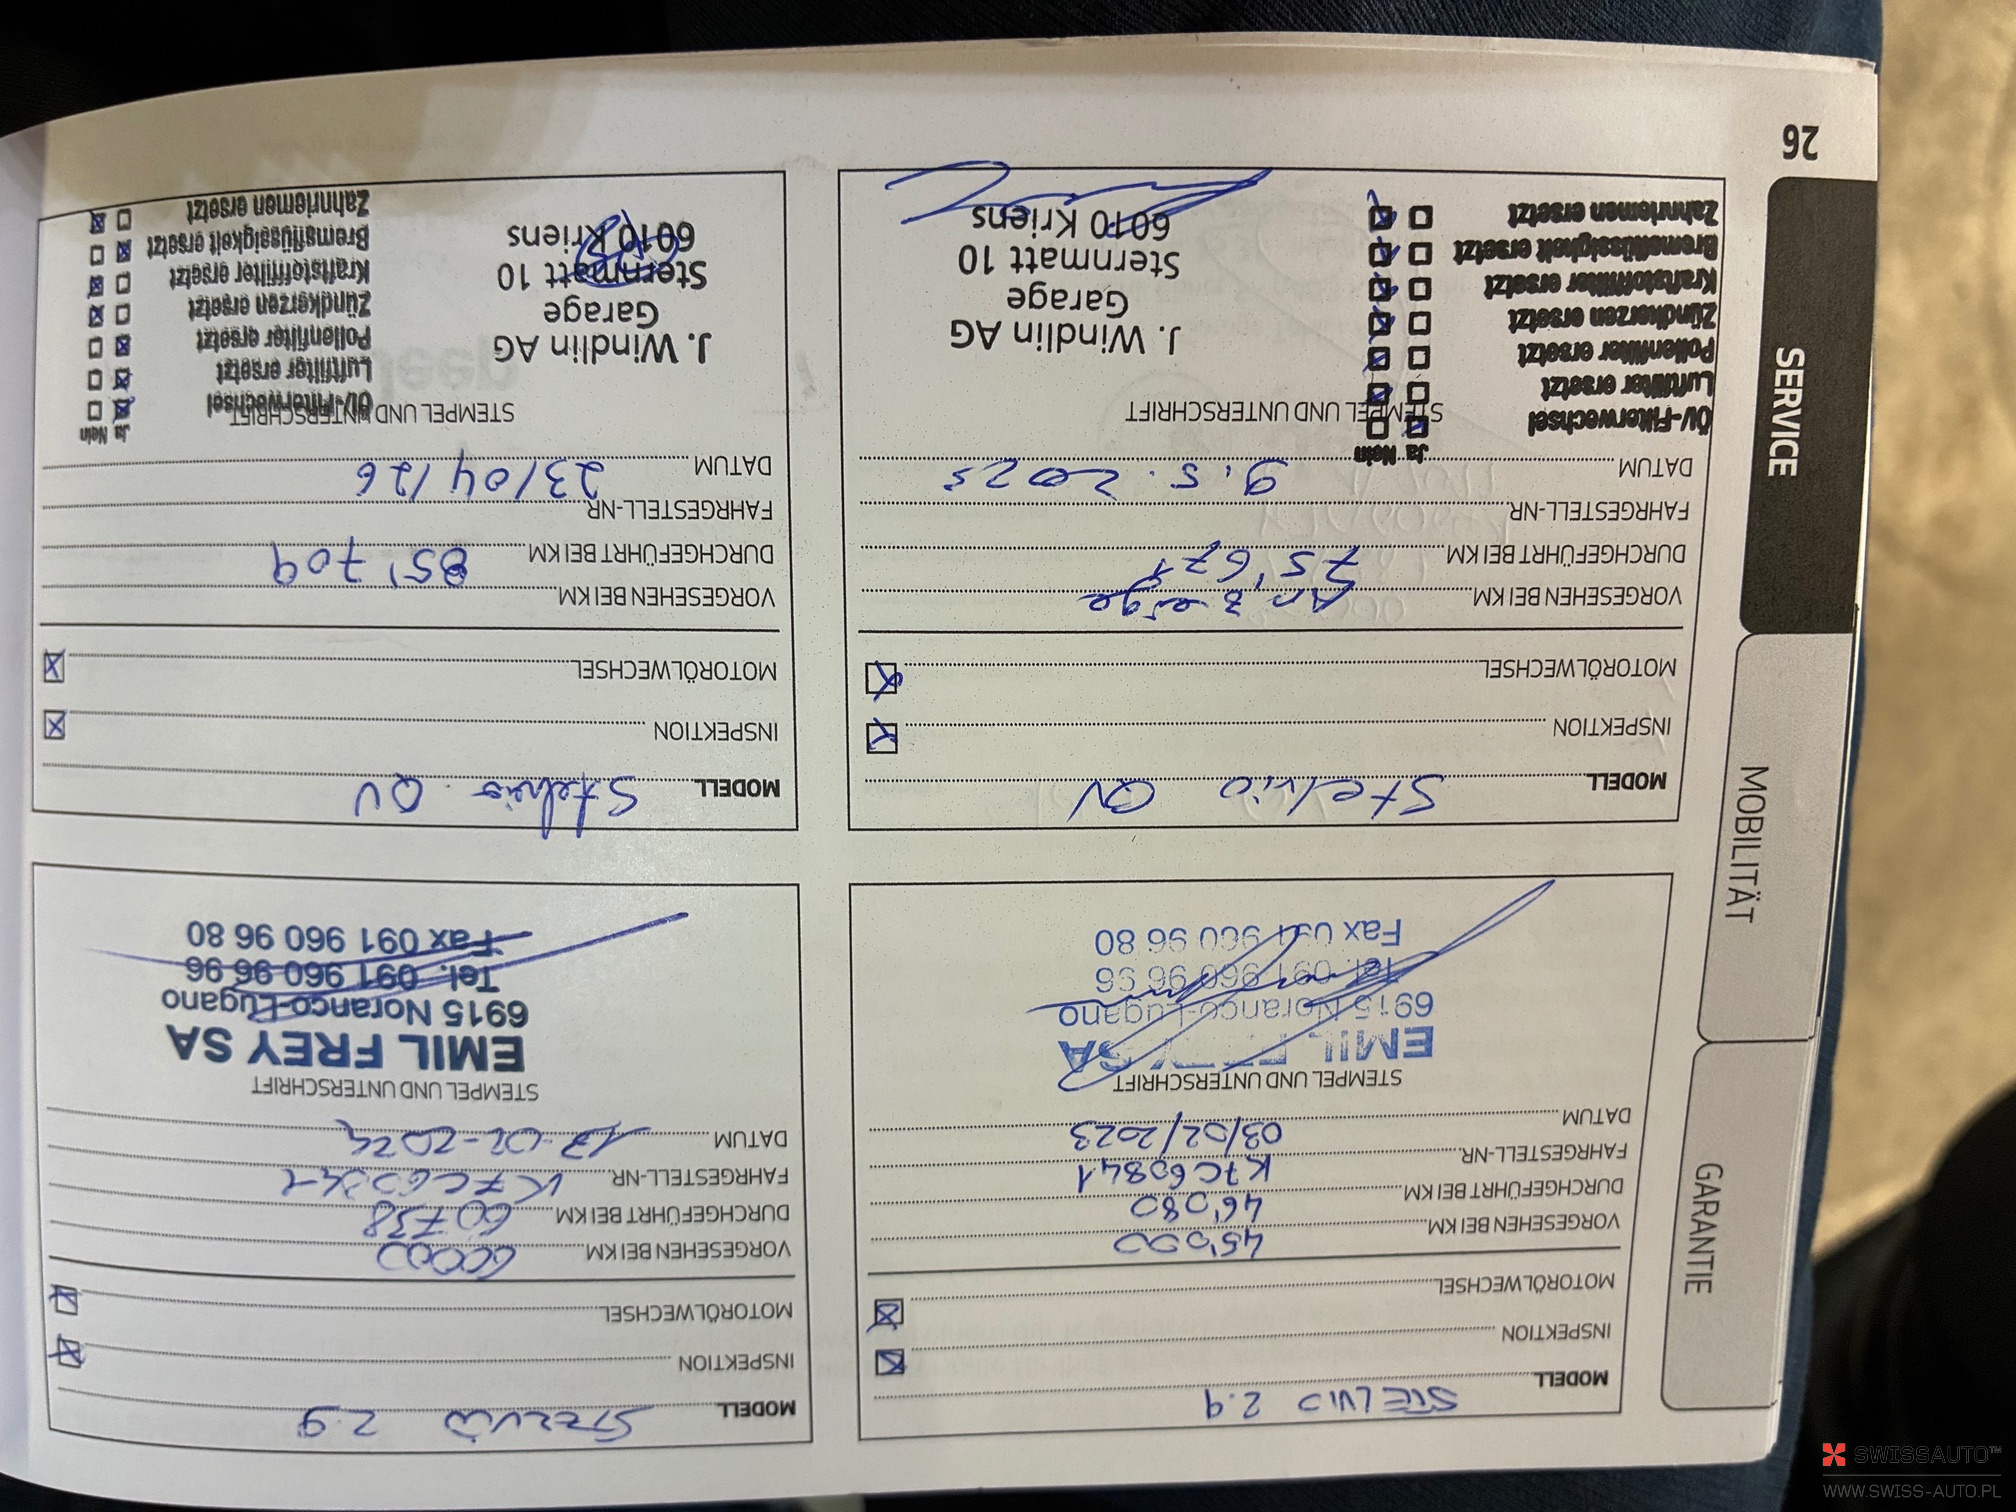 MODELL STELVIO 2.9
INSPEKTION
MOTORÖLWECHSEL
VORGESEHEN BEI KM 45'000
DURCHGEFÜHRT BEI KM 46'080
FAHRGESTELL-NR. K7C60841
DATUM 03/02/2023
STEMPEL UND UNTERSCHRIFT
EMIL FREY SA
6915 Noranco-Lugano
Tel. 091 960 96 96
Fax 091 960 96 80
MODELL STELVIO 2.9
INSPEKTION
MOTORÖLWECHSEL
VORGESEHEN BEI KM 60000
DURCHGEFÜHRT BEI KM 60738
FAHRGESTELL-NR. K7C60841
DATUM
STEMPEL UND UNTERSCHRIFT
EMIL FREY SA
6915 Noranco-Lugano
Tel. 091 960 96 96
Fax 091 960 96 80
MODELL Stelvio QV
INSPEKTION
MOTORÖLWECHSEL
VORGESEHEN BEI KM Anzeige
DURCHGEFÜHRT BEI KM 75'671
FAHRGESTELL-NR
DATUM 9.5.2025
STEMPEL UND UNTERSCHRIFT
Ja Nein
Öl/-Filterwechsel
Luftfilter ersetzt
Pollenfilter ersetzt
Zündkerzen ersetzt
Kraftstofffilter ersetzt
Bremsflüssigkeit ersetzt
Zahnriemen ersetzt
J. Windlin AG
Garage
Sternmatt 10
6010 Kriens
MODELL Stelvio QV
INSPEKTION
MOTORÖLWECHSEL
VORGESEHEN BEI KM
DURCHGEFÜHRT BEI KM 85'709
FAHRGESTELL-NR
DATUM 23/04/26
STEMPEL UND UNTERSCHRIFT
J. Windlin AG
Garage
Sternmatt 10
6010 Kriens
Ja Nein
Öl/-Filterwechsel
Luftfilter ersetzt
Pollenfilter ersetzt
Zündkerzen ersetzt
Kraftstofffilter ersetzt
Bremsflüssigkeit ersetzt
Zahnriemen ersetzt
GARANTIE
MOBILITÄT
SERVICE
26
SWISSAUTO™
WWW.SWISS-AUTO.PL